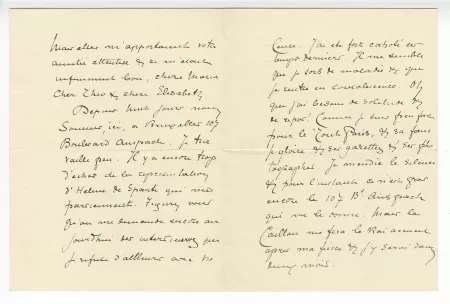 Mais elles m'apportaient votre
amitié attentive & ce m'était
infiniment bon, chère Maria
Cher Théo & chère Elisabeth.
Depuis huit jours nous
sommes ici, à Bruxelles 107
Boulevard Anspach. Je tra
vaille peu. Il y a encore trop
d'échos de la représentation
d'Hélène de Sparte qui me
parviennent. Figurez vous
qu'on me demande encore au
jourd'hui des interviews que
je refuse d'ailleurs avec
J'ai été fort cahoté ces
temps derniers. Il me semble
que je sors de maladie & que
je rentre en convalescence. Oh
que j'ai besoin de solitude &
de repos! Comme je suis peu fait
pour le Tout Paris, & sa fausse
gloire & ses gazettes & ses pho
tographes. Je mendie le silence
& pour l'instant ce n'est pas
encore le 107 Bd Anspach
qui me le donne. Mais le
Caillou me fera le ravissement
après ma fièvre & j'y serai dans
deux mois.